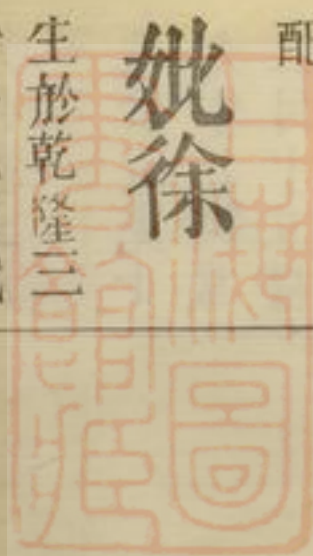 配
妣徐
生於乾隆三